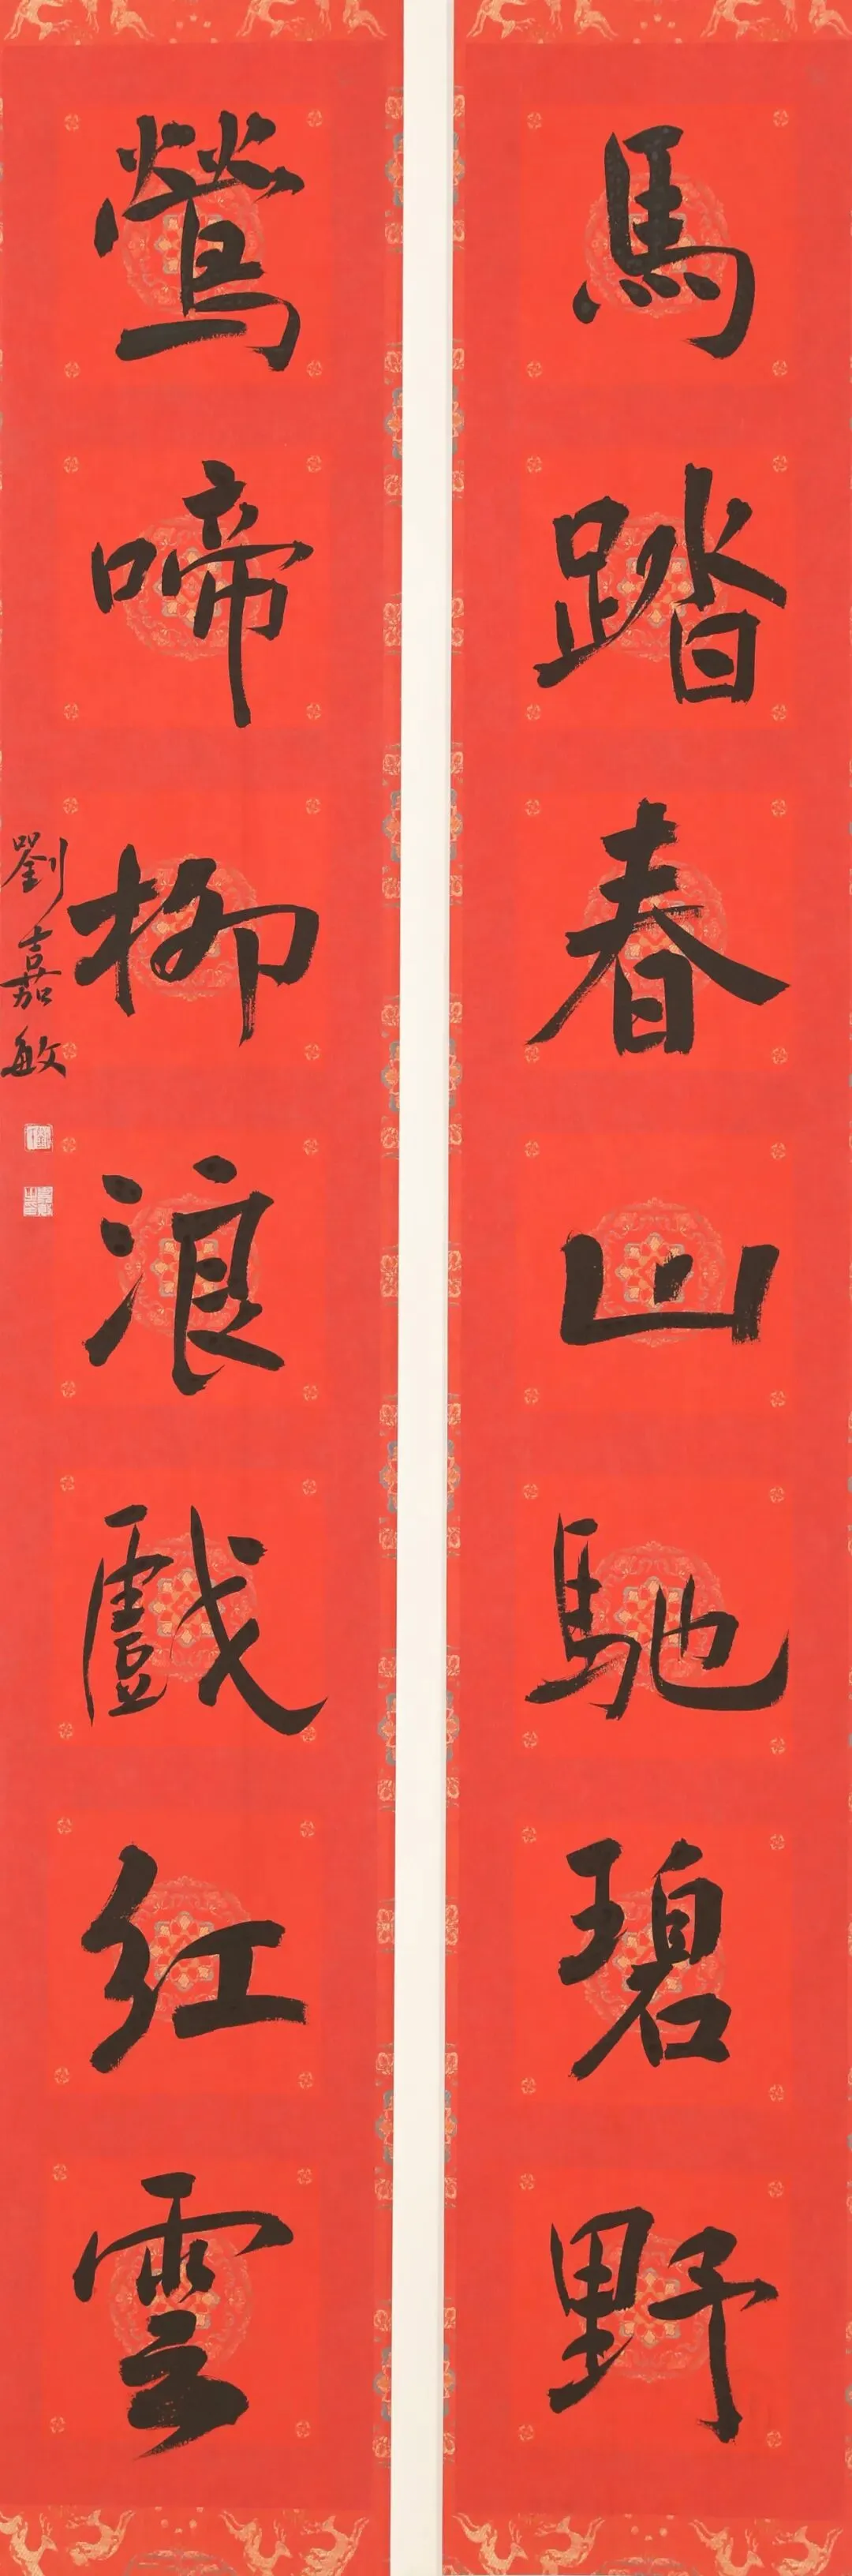 馬踏春山馳碧野
鶯啼柳浪戲紅雲
劉嘉敏